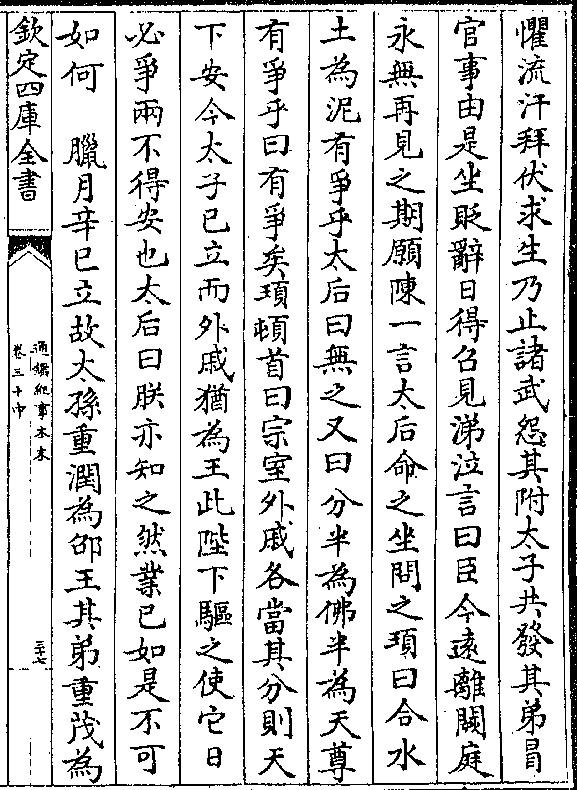 懼流汗拜伏求生乃止諸武怨其附太子共發其弟冐
官事由是坐貶辭日得召見涕泣言曰臣今遠離闕庭
永無再見之期願陳一言太后命之坐問之頊曰合水
土為泥有爭乎太后曰無之又曰分半為佛半為天尊
有爭乎曰有爭矣頊頓首曰宗室外戚各當其分則天
下安今太子已立而外戚猶為王此陛下驅之使它日
必爭兩不得安也太后曰朕亦知之然業已如是不可
如何　臘月辛巳立故太孫重潤為邵王其弟重茂為
欽定四庫全書
通鑑紀事本末
卷三十中
三十七